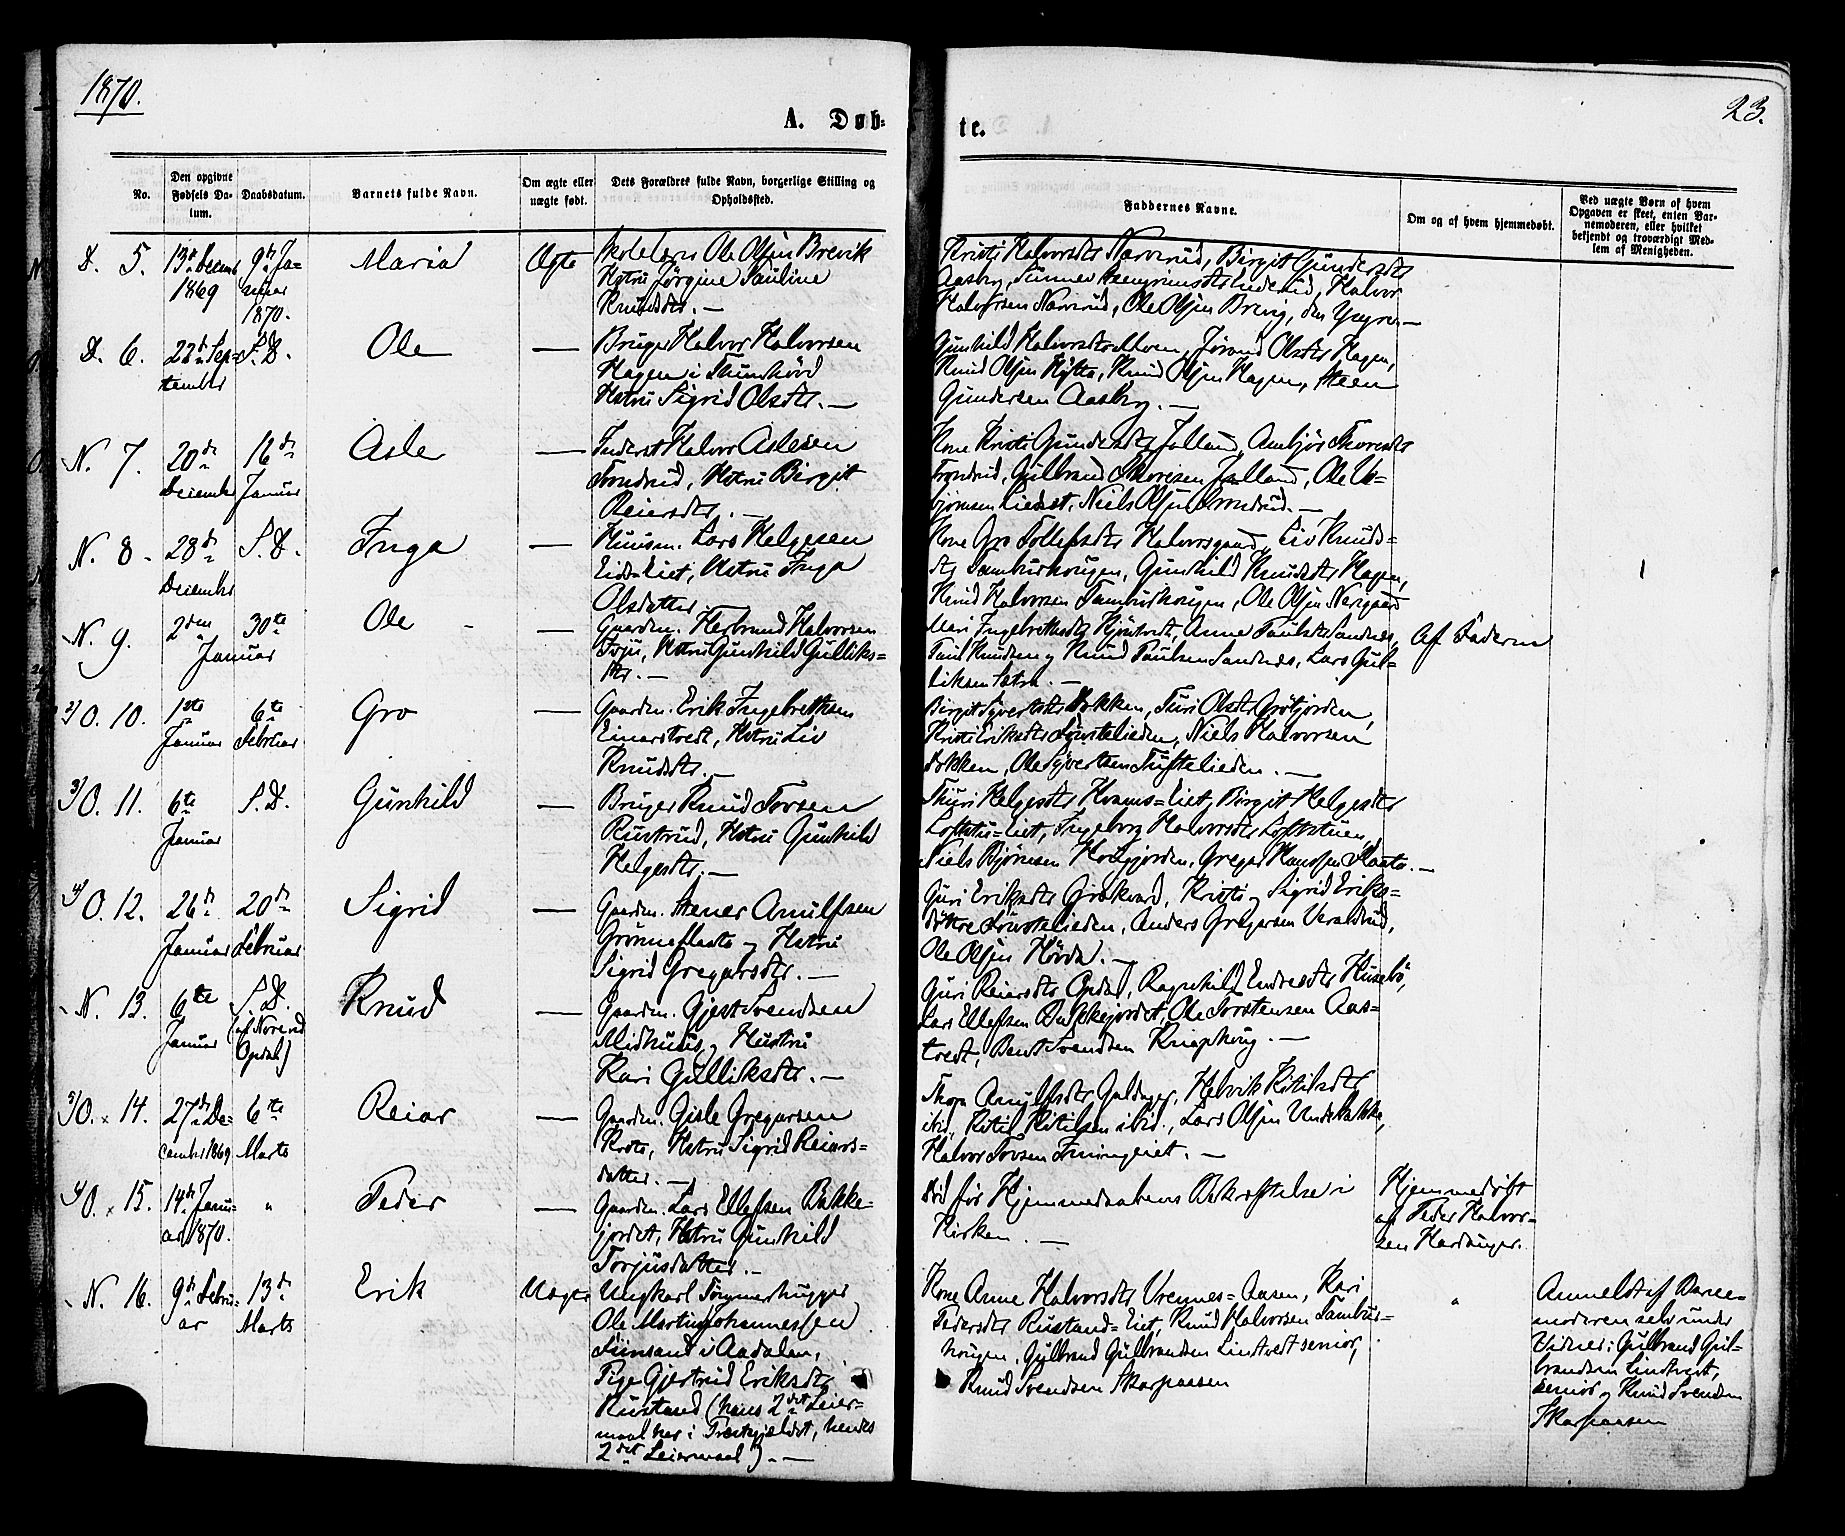 1870.
23.
A. Døb-
te.
No.
Den opgivne Fødsels Da-
tum.
Daabsdatum.
Barnets fulde Navn.
Om ægte eller
uægte født.
Dets Forældres fulde Navn, borgerlige Stilling og
Opholdssted.
Faddernes Navne.
Om og af hvem hjemmedøbt.
Ved uægte Børn af hvem
Opgaven er skeet, enten Bar-
nemoderen, eller hvilket
bekjendt og troværdigt Med-
lem af Menigheden.
D. 5. 13de Decemb 1869 9de Ja-
nuar
1870.
Maria
Ægte
Skolelærer Ole Olsen Brevik
Hstru Jørgine Pauline
Knudsdtr. —
Kristi Halvorsdtr Narverud, Birgit Gundersdtr
Aasby, Halvor
Halvorsen Narverud, Ole Olsen Brevig, den Yngre —
D. 6. 22de Sep-
tember
S. D.
Ole
—
Bruger Halvor Halvorsen
Hagen i
Hstru Sigrid Olsdtr. —
Gunhild Halvorsdtr Moen, Jørand Olsdtr Hagen,
Knud Olsen Hytta, Knud Olsen Hagen, Steen
Gundersen Aasby. —
N. 7. 20de
December
16de
Januar
Asle
—
Inderst Halvor Aslesen
Trondrud, Hstru Birgit
Reiersdtr. —
Kone Kristi Gundersdtr Jolland, Ambjør Thoresdtr
Trondrud, Gulbrand Thoresen Jolland, Ole
Niels Olsen Trondrud. —
N. 8. 28de
December
S. D.
Inga
—
Huusm. Lars Helgesen
Eids-Eiet, Hstru Inga
Olsdatter
Kone Gro Tollefsdtr Halvorsgaard, Liv Knuds-
dtr Tamburhougen, Gunhild Knudsdtr Hagen,
Knud Halvorsen Tamburhougen, Ole Olsen Norgaard
N. 9. 2den
Januar
30te
Ole
—
Gaardm. Herbrand Halvorsen
Hstru Gunhild Gulliks-
dtr. —
Mari Ingebrethsdtr Anne Paulsdtr Sandnes,
Paul Knudsen og Knud Paulsen Sandnes, Lars Gul-
liksen —
Af Faderen
2) O. 10. 1ste
Januar
6te
Februar
Gro
—
Gaardm. Erik Ingebrethsen
Einarstvedt, Hstru Liv
Knudsdtr. —
Birgit Syvertsdtr Bakken, Turi Olsdtr
Kristi Eriksdtr Niels Halvorsen
Bakken, Ole Syvertsen Tuftelieden. —
3) O. 11. 6te
Januar
S. D.
Gunhild
—
Bruger Knud Tovsen
Rustrud, Hstru Gunhild
Helgesdtr. —
Thuri Helgesdtr Birgit Helgesdtr
Ingeborg Halvorsdtr Loftstuen,
Niels Bjørnsen Gregar Hansen —
4) O. 12. 26de
Januar
20de
Februar
Sigrid
—
Gaardm. Stener Arnulfsen
Grønneflaata og Hstru
Sigrid Gregarsdtr. —
Guri Eriksdtr Kristi og Sigrid Eriks-
døtre Anders Gregersen
Ole Olsen —
N. 13. 6te
Januar
S. D.
(af Nore ved
Opdal)
Knud
—
Gaardm. Gjest Svendsen
Midhuus, og Hustru
Kari Gulliksdtr. —
Guri Reiersdtr Opdal, Ragnhild Endresdtr Husebø,
Lars Ellefsen Bakkejordet, Ole Torstensen Aas-
tvedt, Bent Svendsen —
5) O. 14. 27de De-
cember 1869
6te
Marts
Reiar
—
Gaardm. Gisle Gregarsen
Hstru Sigrid Reiars-
datter. —
Arnulfsdtr Helvik Kitilsdtr
ibid., Kitil Kitilsen ibid., Lars Olsen Underbakke,
Halvor Tovsen —
4) O. 15. 14de Janu-
ar 1870.
"
Peder
—
Gaardm. Lars Ellefsen Bakke-
jordet, Hstru Gunhild
Torjusdatter. —
Død før Hjemmedaabens Bekræftelse i
Kirken. —
Hjemmedøbt
af Peder Halvor-
sen Hardanger.
N. 16. 9de Febru-
ar
13de
Marts
Erik
Uægte
Ungkarl Tømmerhugger
Ole Martin Johannessen
Simsand i Aadalen,
Pige Gjertrud Eriksdtr
Rustand (hans 2det Leier-
maal her i Præstegjældet, hendes
2det Leiermaal). —
Kone Anne Halvorsdtr Vrennes-Aasen, Kari
Pedersdtr Rustand-Eiet, Knud Halvorsen Tambur-
hougen, Gulbrand Gulbrandsen Lindtvedt senior,
Knud Svendsen Skarpaasen
"
Anmeldt af Barne-
moderen selv under
Vidner: Gulbrand Gul-
brandsen Lindtvedt,
senior og Knud Svendsen
Skarpaasen